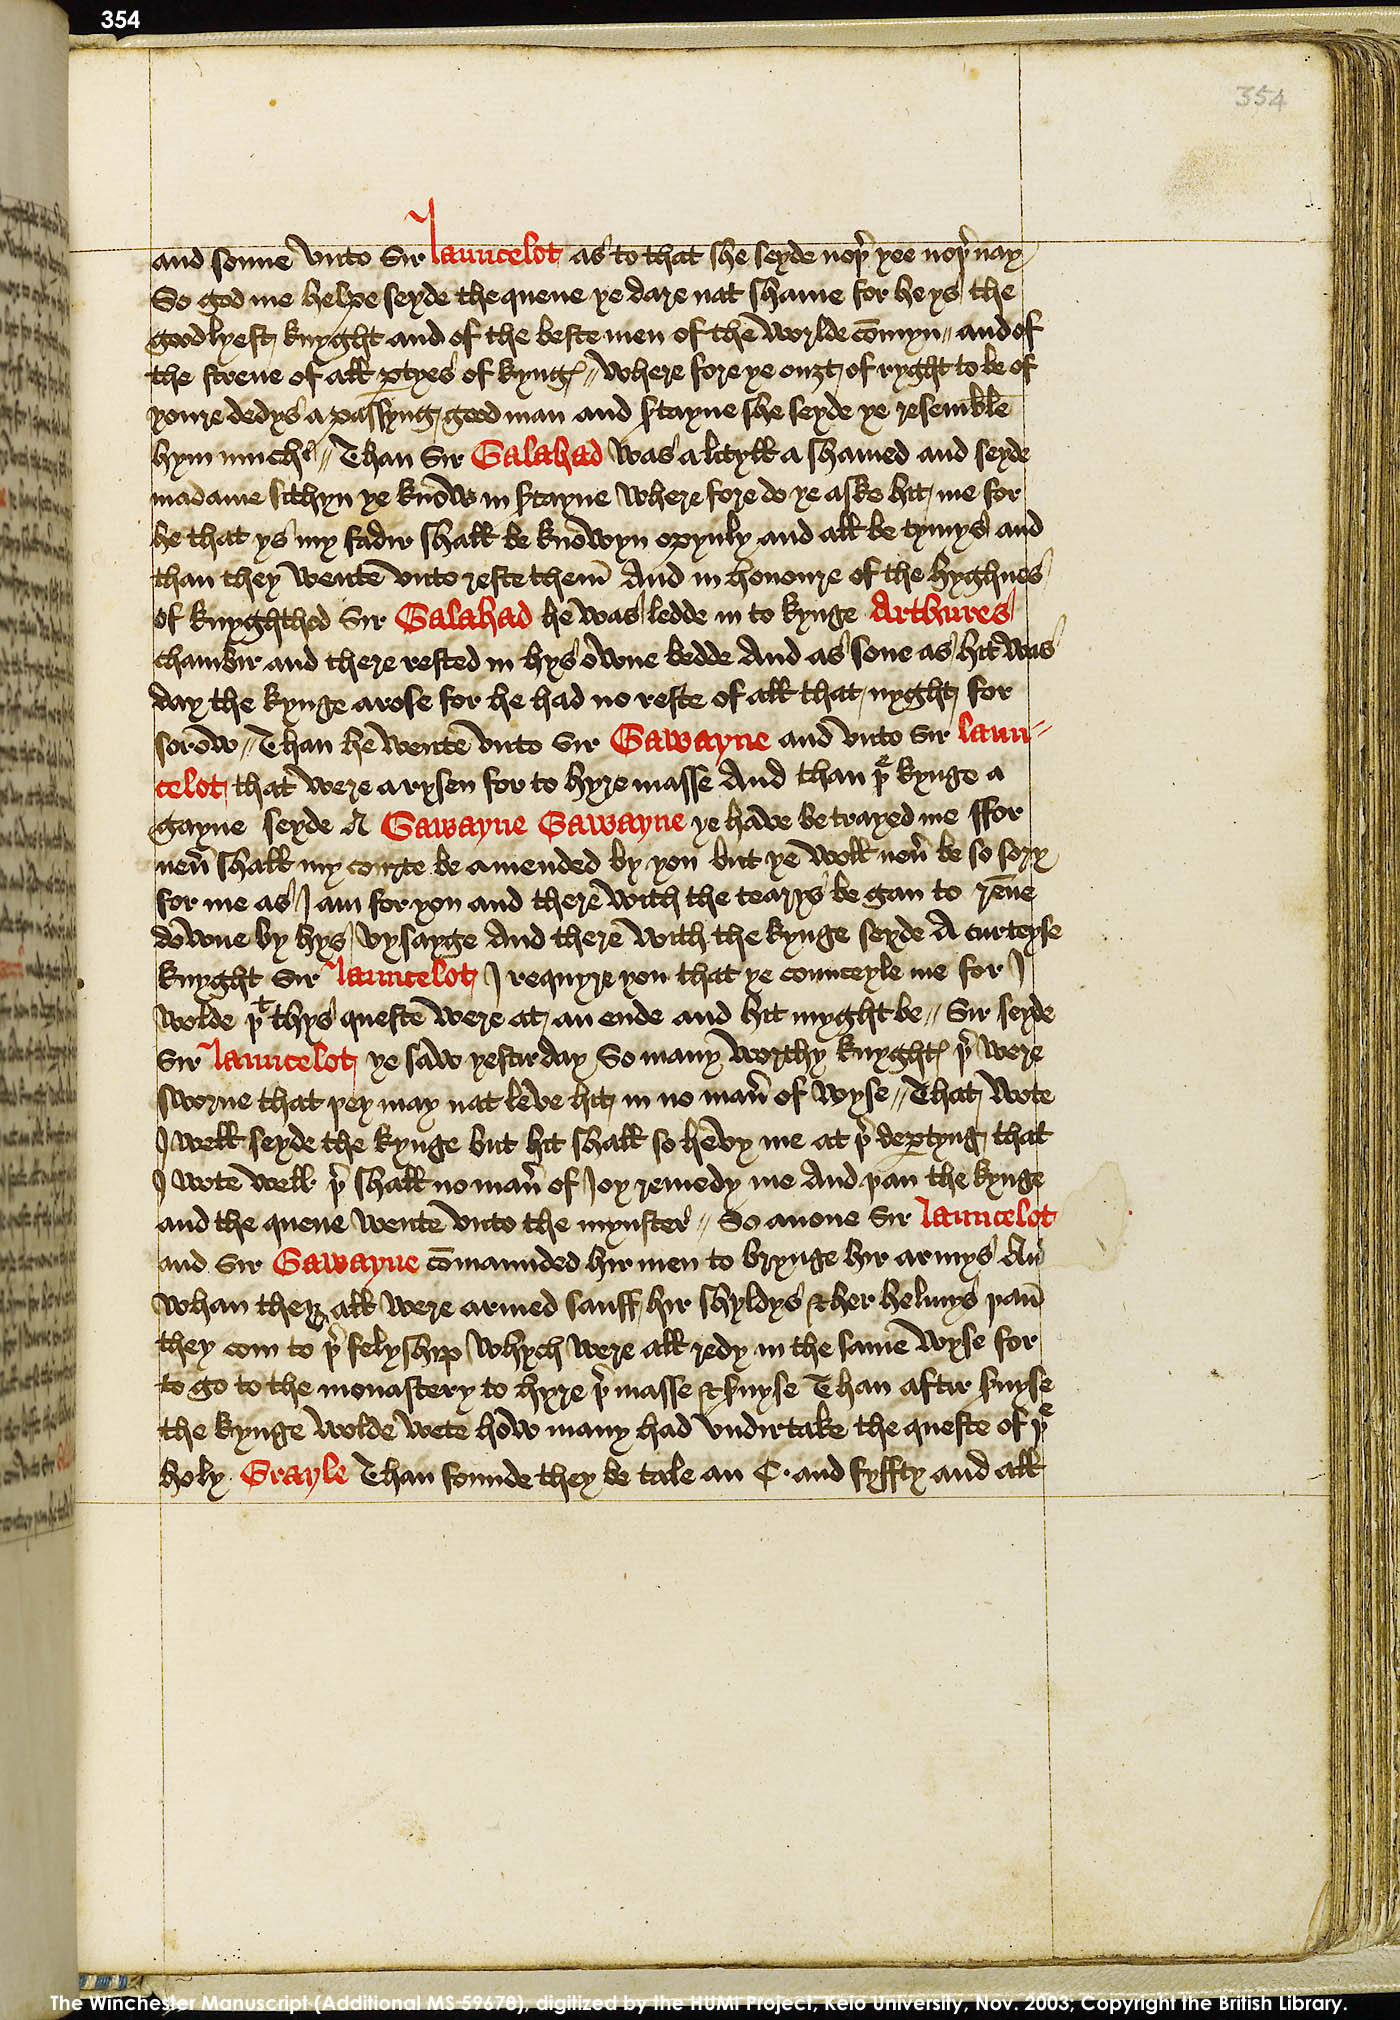 354
354
and sonne vnto Sir Launcelot as to that she seyde noþer yee noþer nay
So god me helpe seyde the quene ye dare nat shame for he ys the
goodlyest knyght and of the beste men of the worlde comyn // and of
the strene of all ꝑtyes of kyngꝭ // Where fore ye ouȝt of ryght to be of
youre dedys a passyng good man and sertayne she seyde ye resemble
hym much // Than Sir Galahad was a lityll a shamed and seyde
madame sithyn ye know in sertayne where fore do ye aske hit me for
he that ys my fadir shall be knowyn opynly and all be tymys and
than they wente vnto reste them And in honoure of the hyghnes
of knyghthod Sir Galahad he was ledde in to kynge Arthures
chambir and there rested in hys owne bedde And as sone as hit was
day the kynge arose for he had no reste of all that nyght for
sorow // Than he wente vnto Sir Gawayne and vnto Sir Laun-
celot that were arysen for to hyre masse And than þe kynge a
gayne seyde A Gawayne Gawayne ye have betrayed me ffor
neuer shall my courte be amended by you but ye woll neuer be so sory
for me as I am for you and there with the tearys be gan to renne
downe by hys vysayge And there with the kynge seyde A curteyse
knyght Sir Launcelot I requyre you that ye counceyle me for I
wolde þt thys queste were at an ende and hit myght be // Sir seyde
Sir Launcelot ye saw yestirday So many worthy knyghtꝭ þer were
sworne that þey may nat leve hit in no maner of wyse // That wote
I well seyde the kynge but hit shall so hevy me at þer deꝑtyng that
I wote well þer shall no maner of Joy remedy me And þan the kynge
and the quene wente vnto the mynster // So anone Sir Launcelot
and Sir Gawayne comaunded hir men to brynge hir armys And
whan they all were armed sauff hir shyldys & her helmys þan
they com to þer felyship whych were all redy in the same wyse for
to go to the monastery to hyre þer masse & seruyse Than aftir seruyse
the kynge wolde wete how many had vndirtake the queste of þe
holy Grayle Than founde they be tale an C · and fyffty and all
The Winchester Manuscript (Additional MS 59678), digitized by the HUMI Project, Keio University, Nov. 2003; Copyright the British Library.